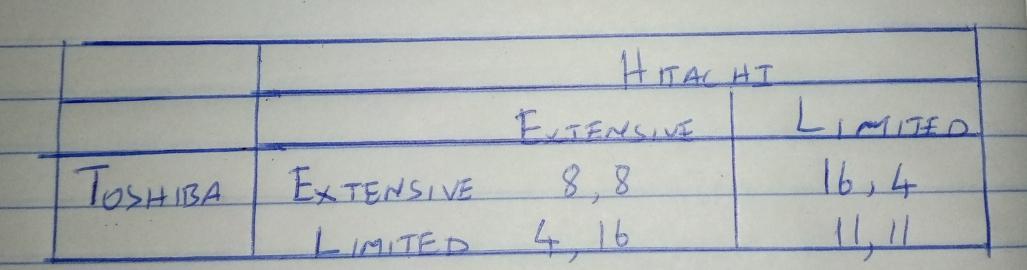 HITACHI
EXTENSIVE LIMITED
TOSHIBA EXTENSIVE 8,8 16,4
LIMITED 4,16 11,11